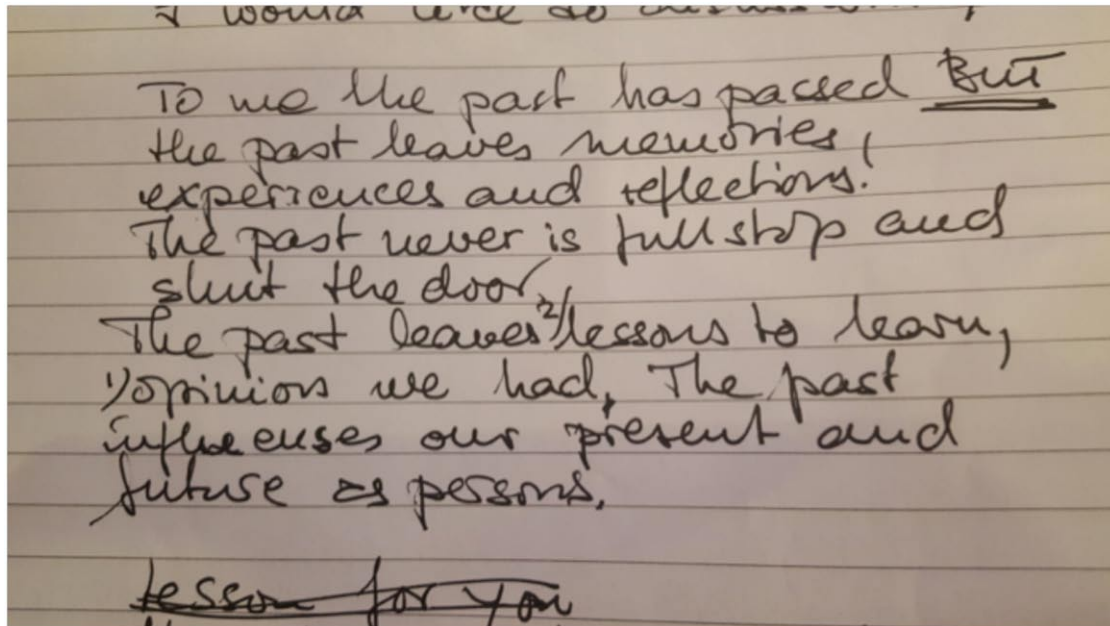 I would like to
To me the past has passed BUT
the past leaves memories,
experiences and reflections!
The past never is full stop and
shut the door,
The past leaves 2/lessons to learn,
1/opinions we had, The past
influenses our present and
future as persons.
Lesson for you